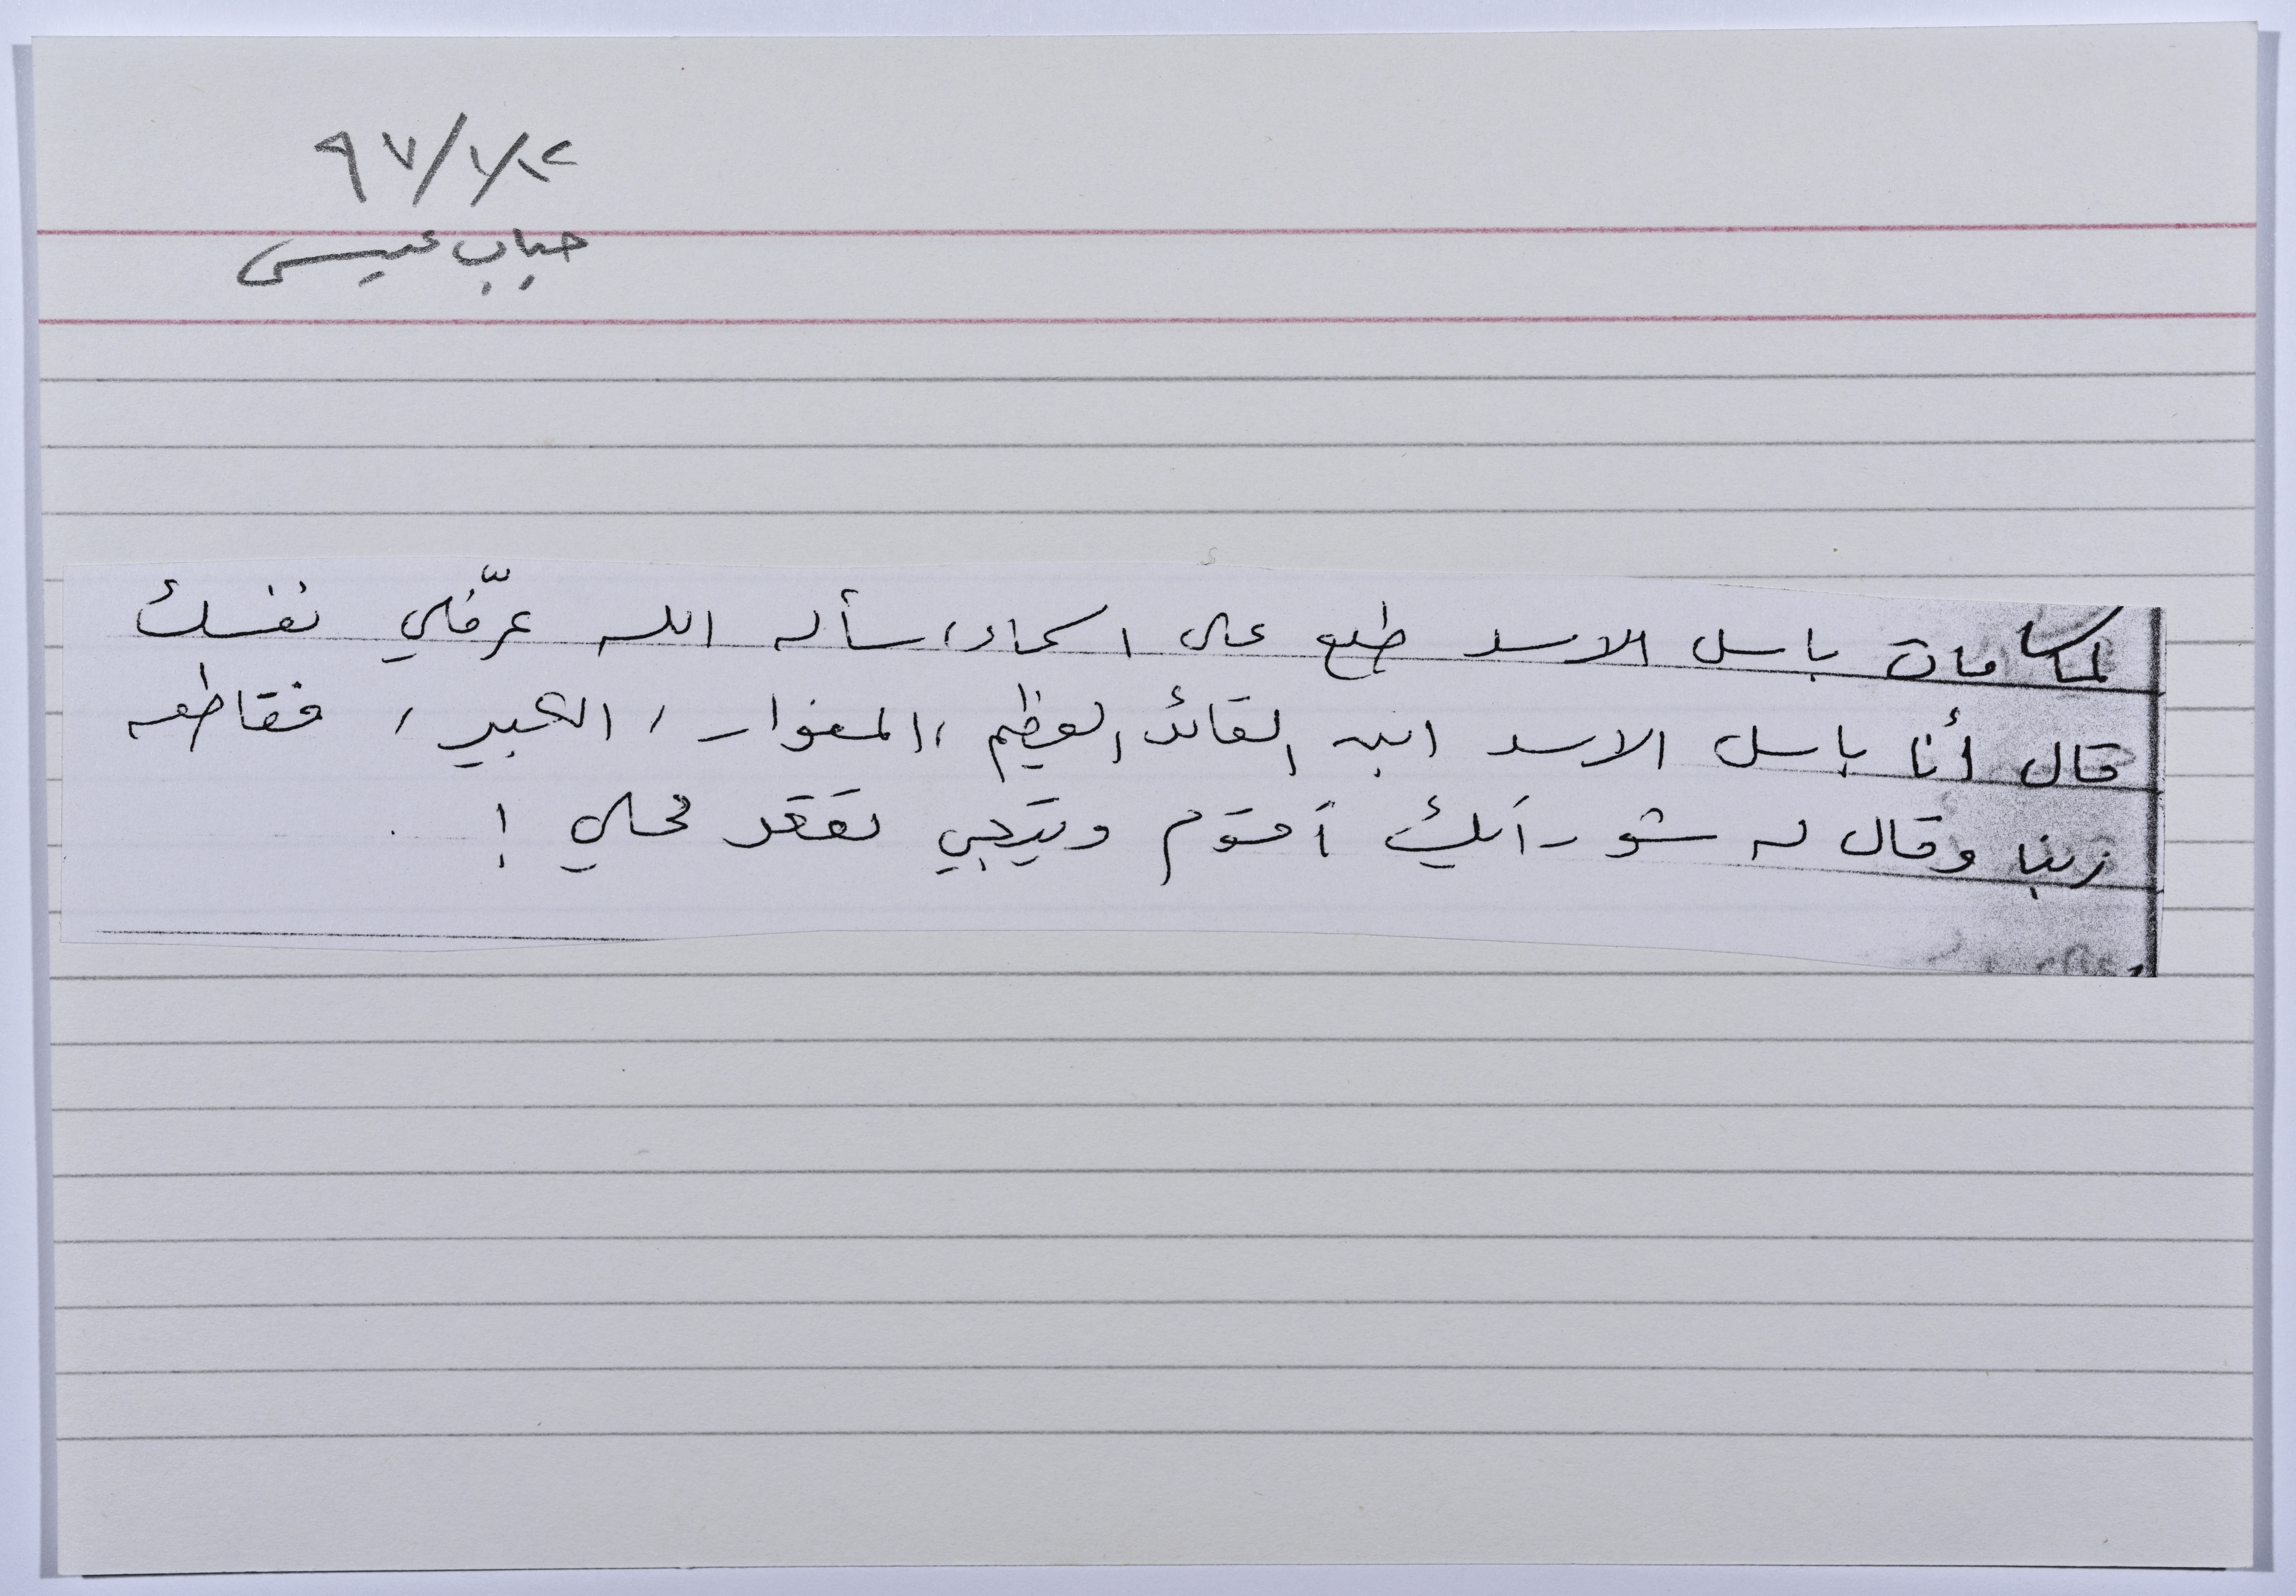 ٩٧/١/١٢
حباب عيسى
لما مات باسل الاسد طلع على السماء، سأله الله عرّفلي نفسك
قال أنا باسل الاسد ابن القائد العظيم، المغوار، الكبير، فقاطعه
ربنا وقال له شو رأيك أقوم وتيجي تقعد محلي!